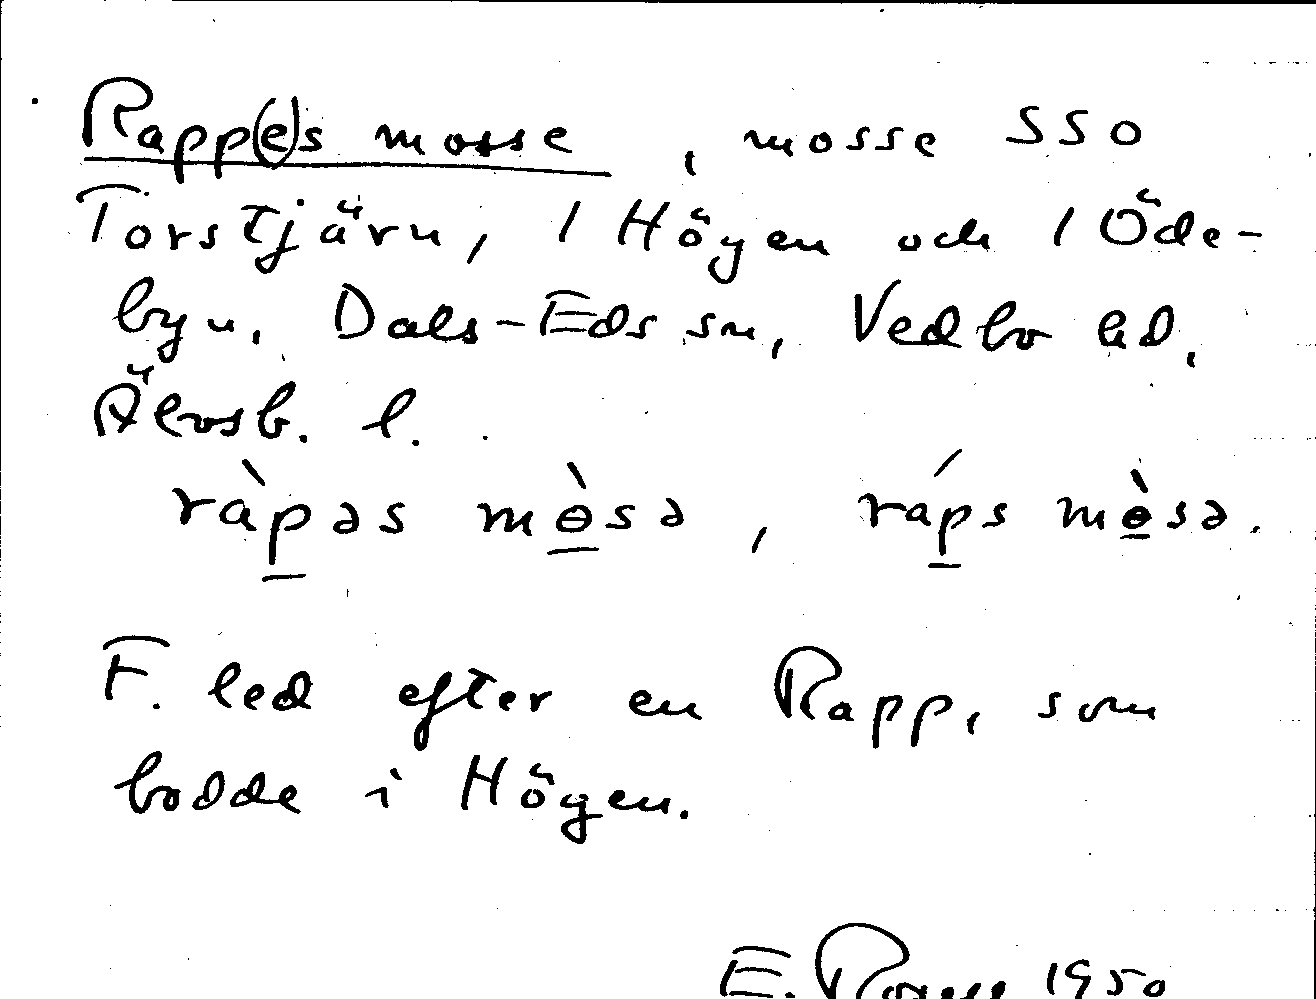 Rapp(e)s mosse, mosse SSO
Torstjärn, 1 Högen och 1 Öde-
byn, Dals-Eds sn, Vedbo hd,
Älvsb. l.
ràpəs mɵ̀sə, ráps mɵ̀sə.
F. led efter en Rapp, som
bodde i Högen.
E. 1950